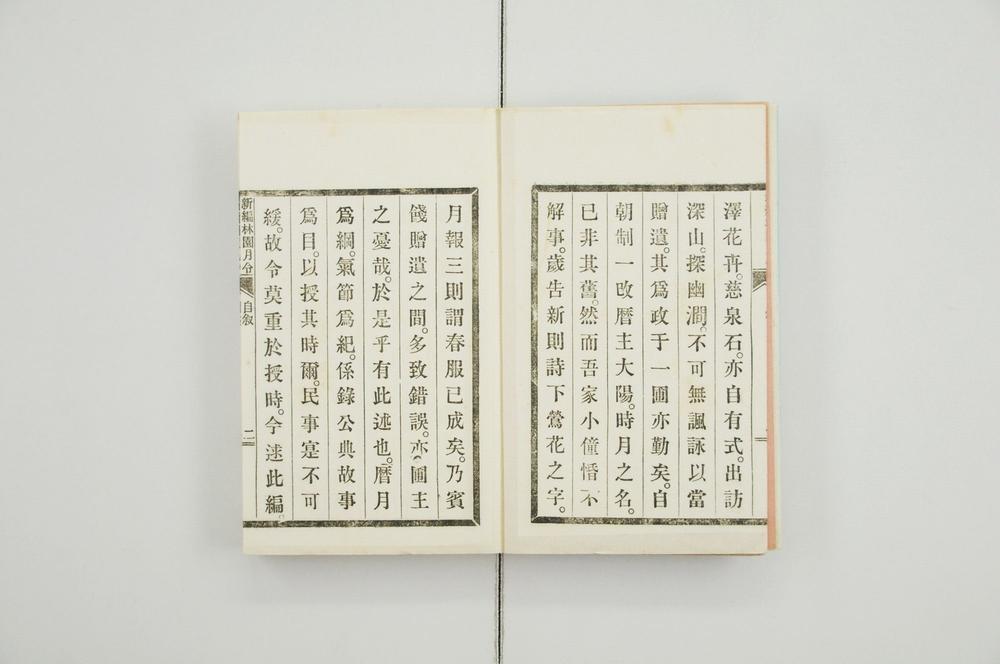 澤花卉。慈泉石。亦自有式。出訪
深山。探幽澗。不可無諷詠以當
贈遺。其爲政于一圃亦勤矣。自
朝制一改曆主大陽。時月之名。
已非其舊。然而吾家小僮惛不
解事。歲告新則詩下鶯花之字。
月報三則謂春服已成矣。乃賓
餞贈遺之間。多致錯誤。亦圃主
之憂哉。於是乎有此述也。曆月
爲綱。氣節爲紀。係錄公典故事
爲目。以授其時爾。民事寔不可
緩。故令莫重於授時。今逑此編。
新編林園月令
自敘
二